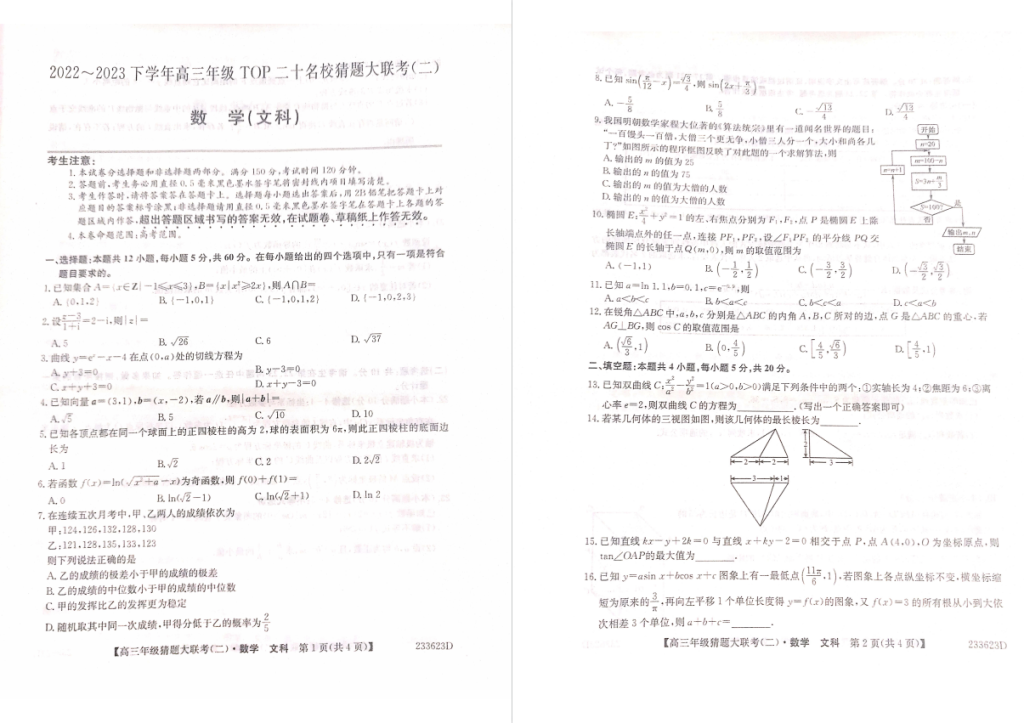 2022～2023下学年高三年级TOP二十名校猜题大联考(二)
数　学(文科)
考生注意：
1.本试卷分选择题和非选择题两部分。满分150分,考试时间120分钟。
2.答题前,考生务必用直径0.5毫米黑色墨水签字笔将密封线内项目填写清楚。
3.考生作答时,请将答案答在答题卡上。选择题每小题选出答案后,用2B铅笔把答题卡上对
应题目的答案标号涂黑;非选择题请用直径0.5毫米黑色墨水签字笔在答题卡上各题的答
题区域内作答,超出答题区域书写的答案无效,在试题卷、草稿纸上作答无效。
4.本卷命题范围:高考范围。
一、选择题:本题共12小题,每小题5分,共60分。在每小题给出的四个选项中,只有一项是符合
题目要求的。
1.已知集合A={x∈Z|-1≤x≤3},B={x|x²≥2x},则A∩B=
A.{0,1,2} B.{-1,0,1} C.{-1,0,1,2} D.{-1,0,2,3}
2.设(z-3)/(1+i)=2-i,则|z|=
A.5 B.√26 C.6 D.√37
3.曲线y=eˣ-x-4在点(0,a)处的切线方程为
A.y+3=0 B.y-3=0
C.x+y+3=0 D.x+y-3=0
4.已知向量a=(3,1),b=(x,-2),若a∥b,则|a+b|=
A.√5 B.5 C.√10 D.10
5.已知各顶点都在同一个球面上的正四棱柱的高为2,球的表面积为6π,则此正四棱柱的底面边
长为
A.1 B.√2 C.2 D.2√2
6.若函数f(x)=ln(√(x²+a)-x)为奇函数,则f(0)+f(1)=
A.0 B.ln(√2-1) C.ln(√2+1) D.ln 2
7.在连续五次月考中,甲、乙两人的成绩依次为
甲:124,126,132,128,130
乙:121,128,135,133,123
则下列说法正确的是
A.乙的成绩的极差小于甲的成绩的极差
B.乙的成绩的中位数小于甲的成绩的中位数
C.甲的发挥比乙的发挥更为稳定
D.随机取其中同一次成绩,甲得分低于乙的概率为2/5
【高三年级猜题大联考(二)·数学　文科　第1页(共4页)】 233623D
8.已知sin(π/12-x)=√3/4,则sin(2x+π/3)=
A.-5/8 B.5/8 C.-√13/4 D.√13/4
9.我国明朝数学家程大位著的《算法统宗》里有一道闻名世界的题目:
“一百馒头一百僧,大僧三个更无争,小僧三人分一个,大小和尚各几
丁?”如图所示的程序框图反映了对此题的一个求解算法,则
A.输出的m的值为25
B.输出的n的值为75
C.输出的m的值为大僧的人数
D.输出的n的值为大僧的人数
开始
n=20
m=100-n
n=n+1
S=3n+m/3
S=100?
是
否
输出m,n
结束
10.椭圆E:x²/4+y²=1的左、右焦点分别为F₁,F₂,点P是椭圆E上除
长轴端点外的任一点,连接PF₁,PF₂,设∠F₁PF₂的平分线PQ交
椭圆E的长轴于点Q(m,0),则m的取值范围为
A.(-1,1) B.(-1/2,1/2) C.(-3/2,3/2) D.(-√3/2,√3/2)
11.已知a=ln 1.1,b=0.1,
A.a<b<c B.b<a<c C.b<c<a D.c<a<b
12.在锐角△ABC中,a,b,c分别是△ABC的内角A,B,C所对的边,点G是△ABC的重心,若
AG⊥BG,则cos C的取值范围是
A.(√6/3,1) B.(0,4/5) C.[4/5,√6/3) D.[4/5,1)
二、填空题:本题共4小题,每小题5分,共20分。
13.已知双曲线C:x²/a²-y²/b²=1(a>0,b>0)满足下列条件中的两个:①实轴长为4;②焦距为6;③离
心率e=2,则双曲线C的方程为________.(写出一个正确答案即可)
14.若某几何体的三视图如图,则该几何体的最长棱长为________.
2 2 2 3
3 1
15.已知直线kx-y+2k=0与直线x+ky-2=0相交于点P,点A(4,0),O为坐标原点,则
tan∠OAP的最大值为________.
16.已知y=asin x+bcos x+c图象上有一最低点(11π/6,1),若图象上各点纵坐标不变,横坐标缩
短为原来的3/π,再向左平移1个单位长度得y=f(x)的图象,又f(x)=3的所有根从小到大依
次相差3个单位,则a+b+c=________.
【高三年级猜题大联考(二)·数学　文科　第2页(共4页)】 233623D